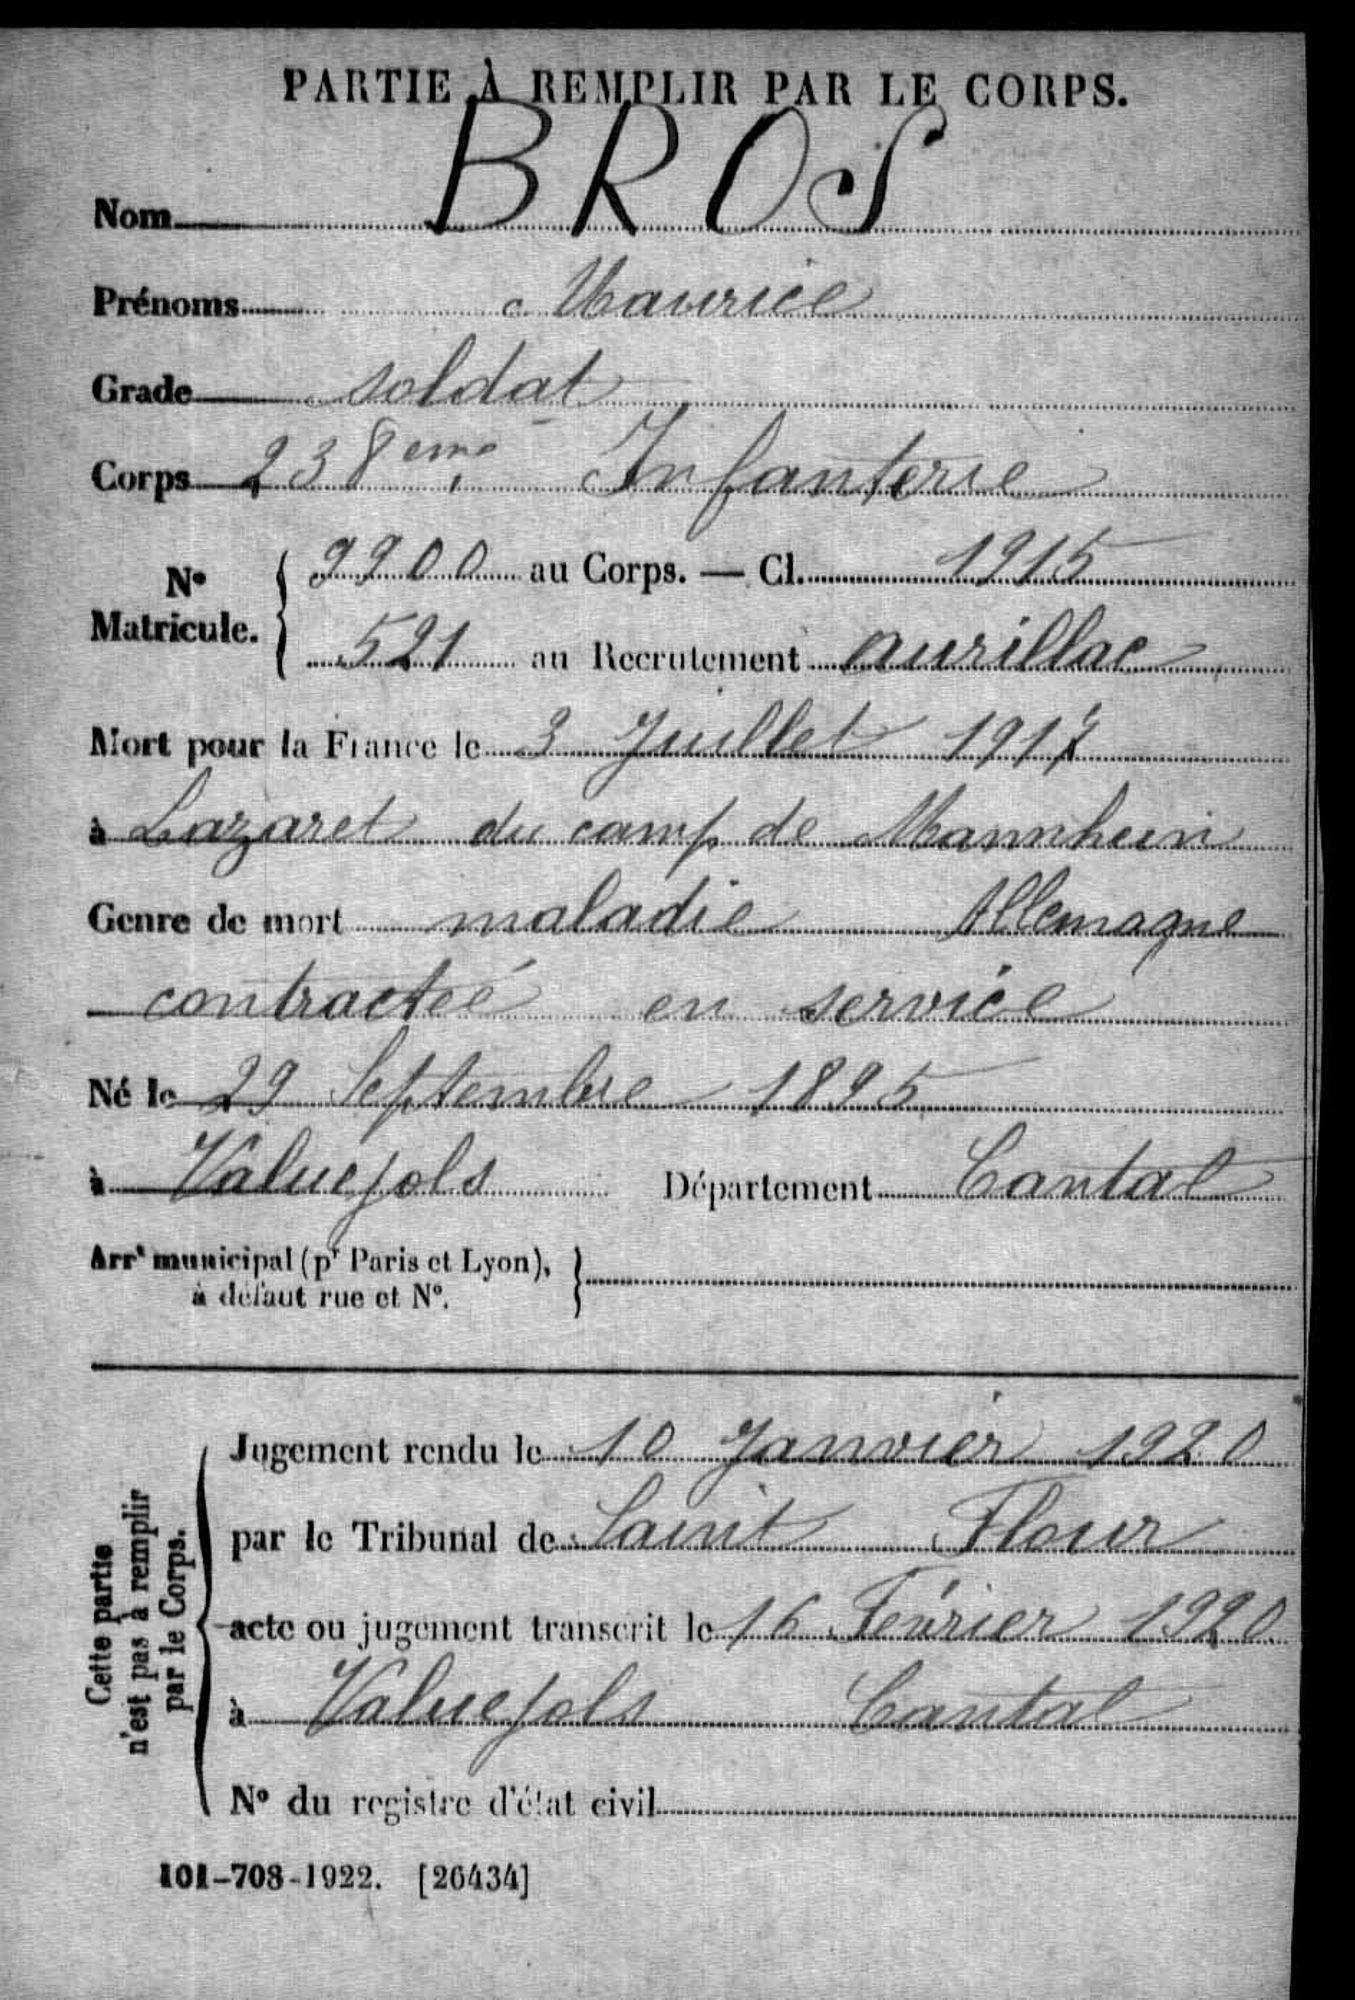 PARTIE À REMPLIR PAR LE CORPS.
Nom BROS
Prénoms Maurice
Grade soldat
Corps 238eme Infanterie
N° Matricule. { 9900 au Corps. — Cl. 1915
521 au Recrutement Aurillac
Mort pour la France le 3 Juillet 1917
à Lazaret du camp de Mannheim
Genre de mort maladie Allemagne
contractée en service
Né le 29 Septembre 1895
à Valuejols Département Cantal
Arrt municipal (pr Paris et Lyon), }
à défaut rue et N°.
Cette partie
n'est pas à remplir
par le Corps.
Jugement rendu le 10 Janvier 1920
par le Tribunal de Saint Flour
acte ou jugement transcrit le 16 Février 1920
à Valuejols Cantal
N° du registre d'état civil
101-708-1922. [26434]